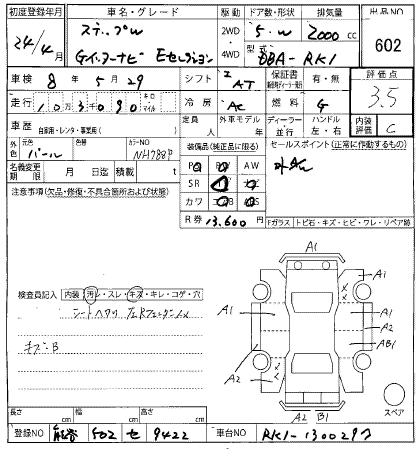 初度登録年月 車名・グレード 駆動 ドア数・形状 排気量 出品NO
24/4月 ステップW 2WD 5・W 2000cc 602
Gインターナビ Eセレクション 4WD 型式 DBA-RK1
車検 8年5月29 シフト AT 保証書 有・無 評価点
走行 10万3090 キロ マイル 冷房 AC 燃料 G 3.5
車歴 自家用・レンタ・事業用( ) 定員 人 外車モデル 年 ディーラー 並行 ハンドル 左・右 内装評価 C
色 元色 パール カラーNO NH788P 装備品(純正品に限る) セールスポイント(正常に作動するもの)
名義変更期限 月 日迄 積載 t PS PW AW
注意事項(欠品・修復・不具合箇所および状態) SR
カワ BS
R券 13,600 Fガラス トビ石・キズ・ヒビ・ワレ・リペア跡
A1
A1
検査員記入 内装 汚レ・スレ・キズ・キレ・コゲ・穴
A1 A1
A2
キズ・B AB1
A2 A2
A2 B1
スペア
長さ cm 幅 cm 高さ cm
登録NO 502 せ 9422 車台NO RK1-1300297